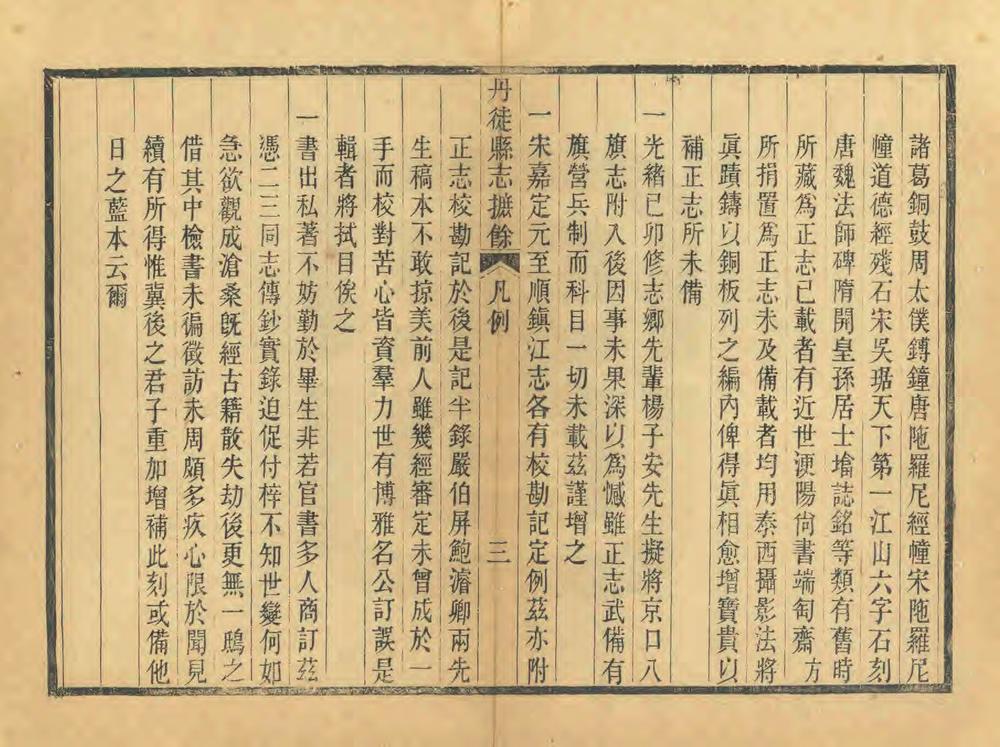 諸葛銅鼓周太僕鎛鐘唐陁羅尼經幢宋陁羅尼
幢道德經殘石宋吳琚天下第一江山六字石刻
唐魏法師碑隋開皇孫居士墖誌銘等類有舊時
所藏爲正志已載者有近世浭陽尙書端匋齋方
所捐置爲正志未及備載者均用泰西攝影法將
眞蹟鑄以銅板列之編內俾得眞相愈增寶貴以
補正志所未備
一光緒己卯修志鄉先輩楊子安先生擬將京口八
旗志附入後因事未果深以爲憾雖正志武備有
旗營兵制而科目一切未載茲謹增之
一宋嘉定元至順鎭江志各有校勘記定例茲亦附
丹徒縣志摭餘 凡例 三
正志校勘記於後是記半錄嚴伯屏鮑濬卿兩先
生稿本不敢掠美前人雖幾經審定未曾成於一
手而校對苦心皆資羣力世有博雅名公訂誤是
輯者將拭目俟之
一書出私著不妨勤於畢生非若官書多人商訂茲
憑二三同志傳鈔實錄迫促付梓不知世變何如
急欲觀成滄桑旣經古籍散失劫後更無一鴟之
借其中檢書未徧徵訪未周頗多疚心限於聞見
續有所得惟冀後之君子重加增補此刻或備他
日之藍本云爾